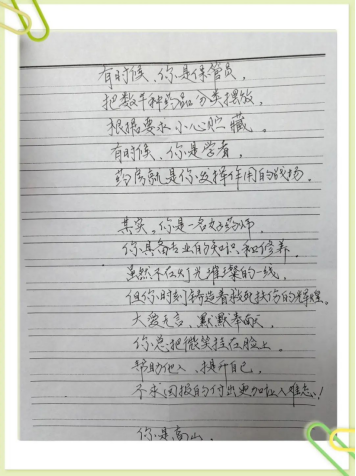 有时候、你是保管员，
把数千种药品分类摆放，
根据要求小心贮藏。
有时候、你是学者，
药房就是你发挥作用的战场。
其实，你是一名好药师，
你具备专业的知识和修养，
虽然不在灯光璀璨的一线，
但你时刻铸造着救死扶伤的辉煌。
大爱无言、默默奉献，
你总把微笑挂在脸上。
帮助他人、提升自己，
不求回报的付出更加让人难忘！
你是高山，